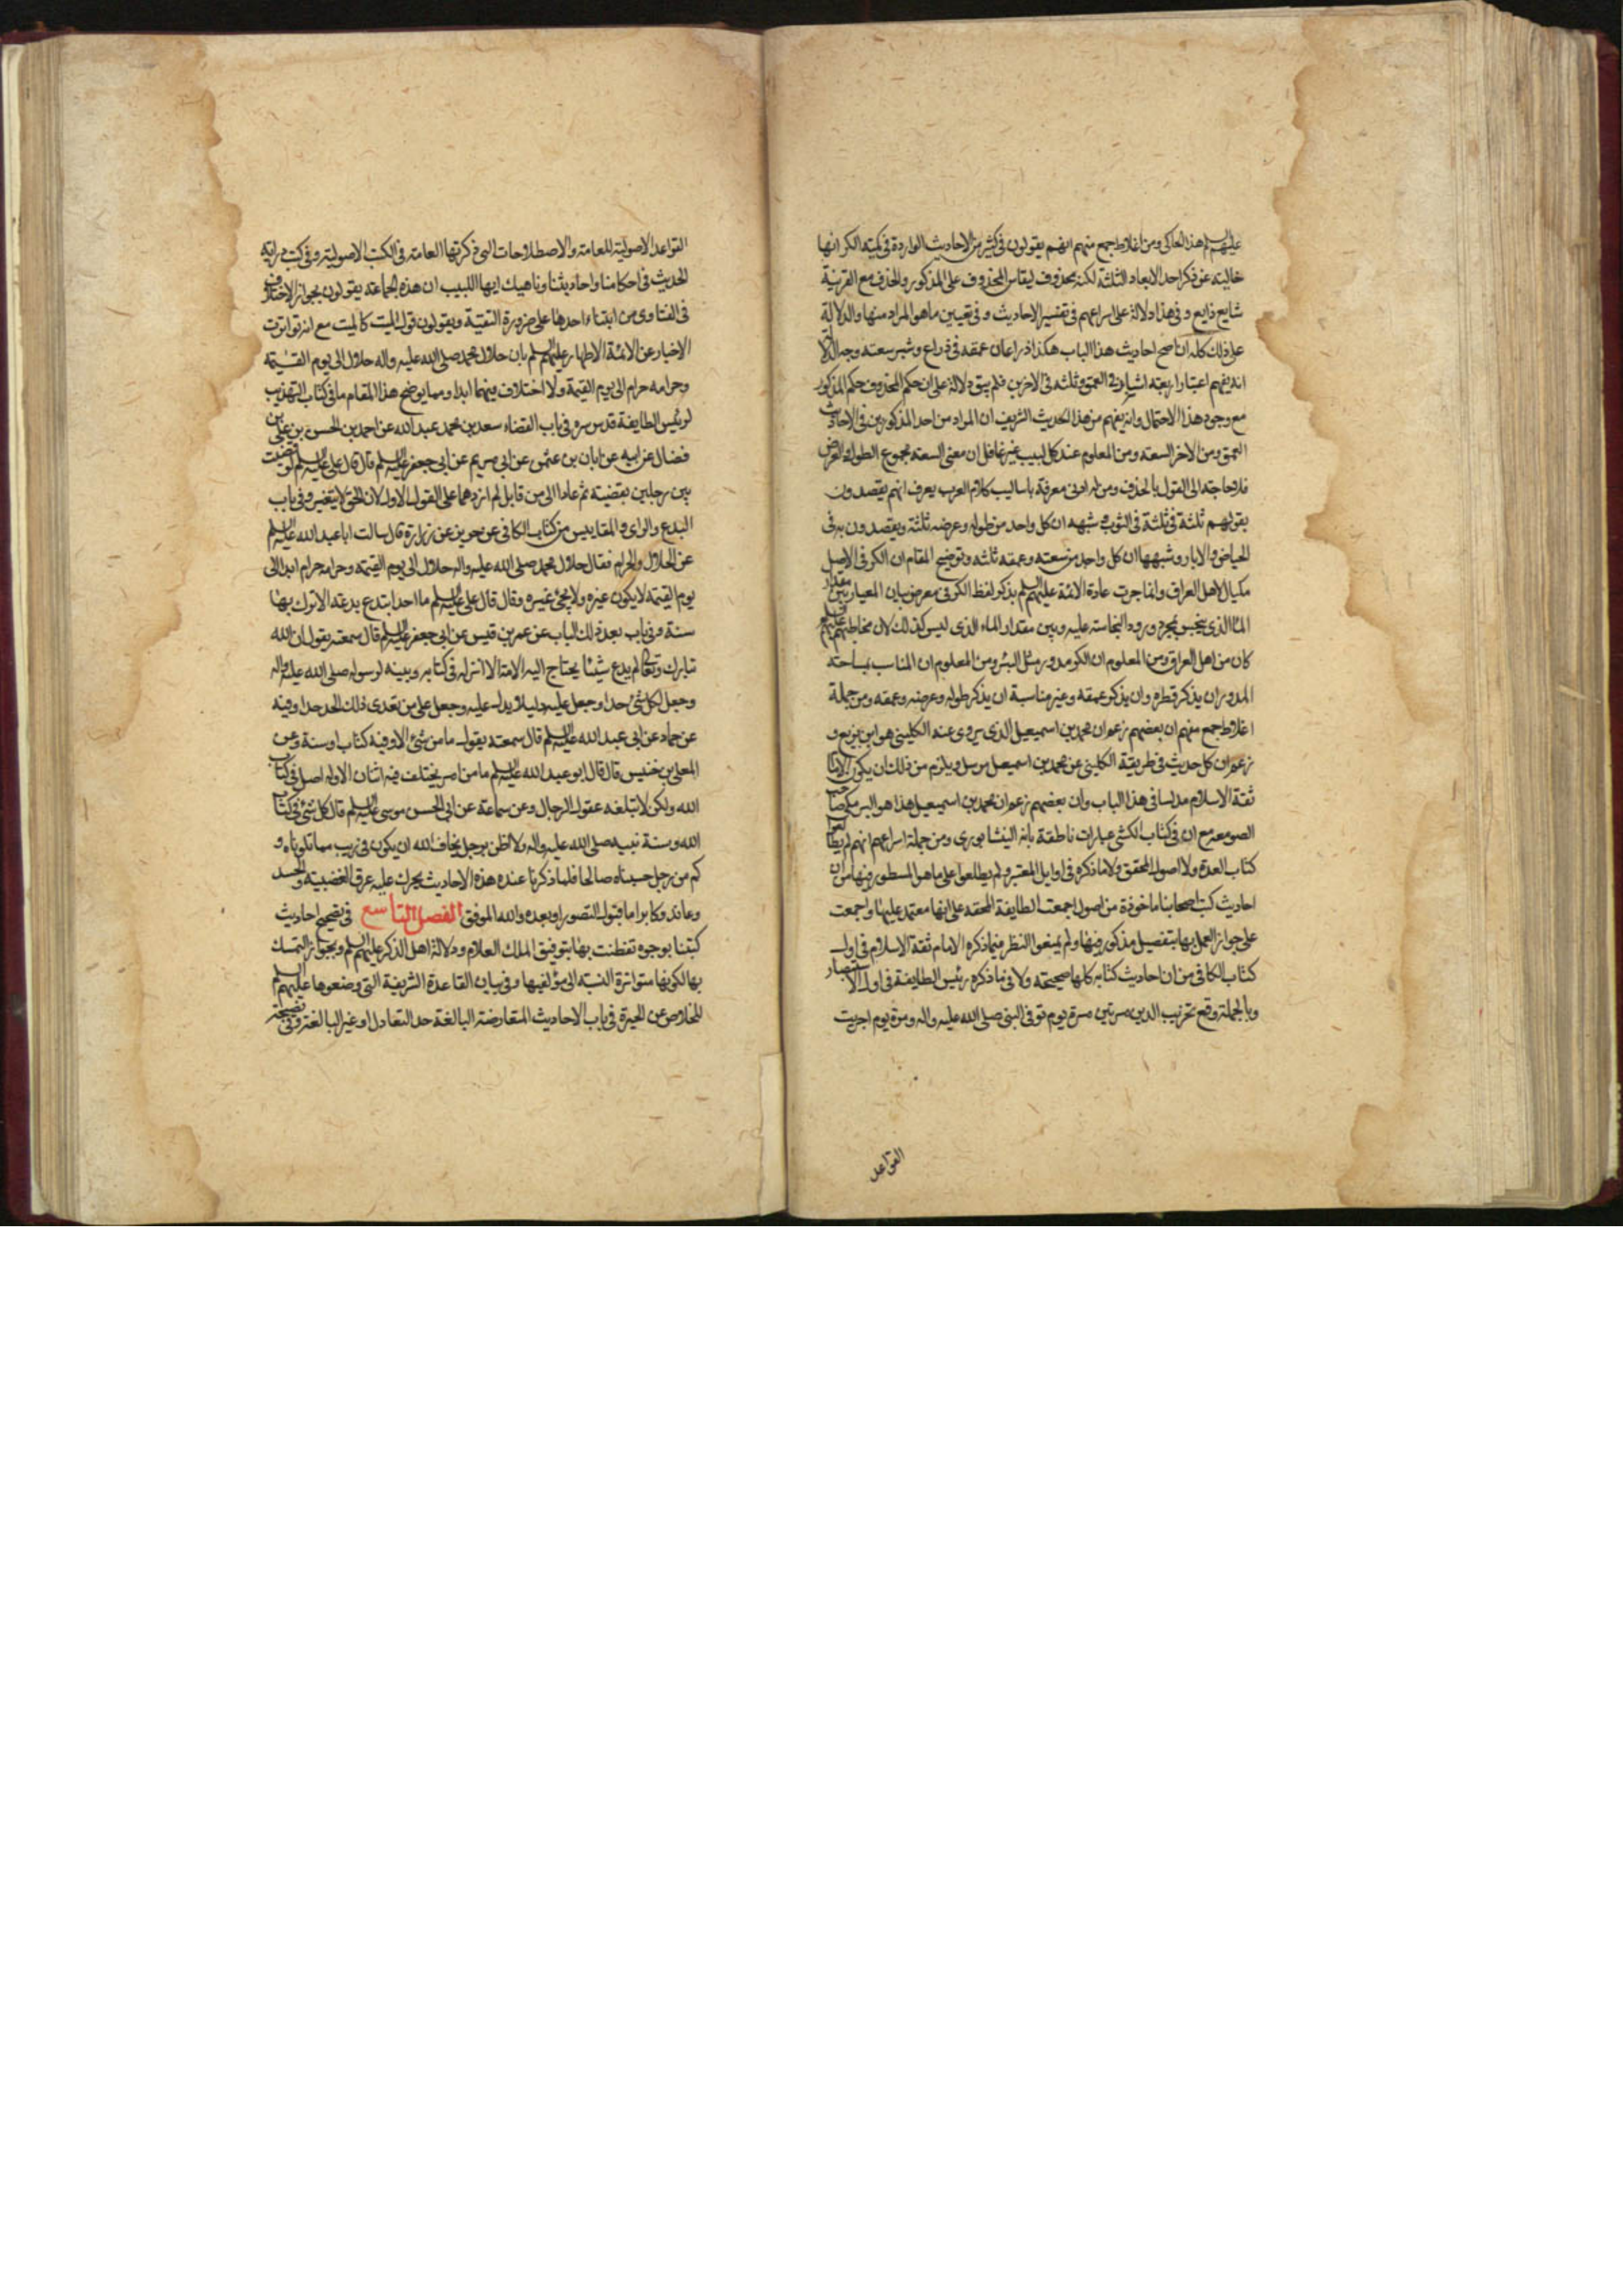 عليهم السلم هذا لحاكى ومن اغلاط جمع منهم انهم يقولون فى كثير من الاحاديث الواردة فى كمية الكر انها
خالية عن ذكر احد الابعاد الثلثة لكنه محذوف ليقاس المحذوف على المذكور والحذف مع القرينة
شايع ذايع وفى هذا دلالة على اسراعهم فى تفسير الاحاديث وفى تعيين ما هو المراد منها والدلالة
على ذلك كله ان اصح احاديث هذا الباب هكذا ذراعان عمقه فى ذراع وشبر سعته وجه الدلالة
انه يفهم اعتبار اربعة اشبار فى العمق وثلثه فى الاخرين فلم يبق دلالة على ان حكم المحذوف حكم المذكور
مع وجود هذا الاحتمال وانه يفهم من هذا الحديث الشريف ان المراد من احد المذكورين فى الاحاديث
العمق ومن الاخر السعة ومن المعلوم عند كل لبيب غير غافل ان معنى السعة مجموع الطول والعرض
فلا حاجة الى القول بالحذف ومن له ادنى معرفة باساليب كلام العرب يعرف انهم يقصدون
بقولهم ثلثة فى ثلثة فى الثوب وشبهه ان كل واحد من طوله وعرضه ثلثة ويقصدون به فى
الحياض والابار وشبهها ان كل واحد من سعته وعمقه ثلثه وتوضيح المقام ان الكر فى الاصل
مكيال لاهل العراق وانما جرت عادة الائمة عليهم السلم بذكر لفظ الكر فى معرض بيان المعيار بين مقدار
الماء الذى ينجس بمجرد ورود النجاسة عليه وبين مقدار الماء الذى ليس كذلك لان مخاطبهم عليهم السلم
كان من اهل العراق ومن المعلوم ان الكر مدور مثل البئر ومن المعلوم ان المناسب بمساحة
المدور ان يذكر قطره وان يذكر عمقه وغير مناسبة ان يذكر طوله وعرضه وعمقه ومن جملة
اغلاط جمع منهم ان بعضهم زعم ان محمد بن اسمعيل الذى يروى عنه الكلينى هو ابن بزيع و
زعم ان كل حديث فى طريقة الكلينى عن محمد بن اسمعيل مرسل ويلزم من ذلك ان يكون الامام
ثقة الاسلام مدلسا فى هذا الباب وان بعضهم زعم ان محمد بن اسمعيل هذا هو البرمكى صاحب
الصومعه مع ان فى كتاب الكشى عبارات ناطقة بانه النيشابورى ومن جملة اسراعهم انهم لم يطالعوا
كتاب العدة ولا اصول المحقق ولا ما ذكره فى اوايل المعتبر ولم يطلعوا على ما هو المسطور فيها من ان
احاديث كتب اصحابنا ماخوذة من اصول اجمعت الطايفة المحقة على انها معتمد عليها واجمعت
على جواز العمل بها بتفصيل مذكور فيها ولم يمعنوا النظر فيما ذكره الامام ثقة الاسلام فى اول
كتاب الكافى من ان احاديث كتابه كلها صحيحة ولا فيما ذكره رئيس الطايفة فى اول الاستبصار
وبالجملة وقع تخريب الدين مرتين مرة يوم توفى النبى صلى الله عليه واله ومرة يوم اجريت
القواعد
القواعد الاصولية للعامة والاصطلاحات التى ذكرتها العامة فى الكتب الاصولية وفى كتب دراية
الحديث فى احكامنا واحاديثنا وناهيك ايها اللبيب ان هذه الجماعة يقولون بجواز الاختلاف
فى الفتاوى من ابتناء احدها على ضرورة التقية ويقولون قول الميت كالميت مع انه تواترت
الاخبار عن الائمة الاطهار عليهم السلم بان حلال محمد صلى الله عليه واله حلال الى يوم القيمة
وحرامه حرام الى يوم القيمة ولا اختلاف فيهما ابدا ومما يوضح هذا المقام ما فى كتاب التهذيب
لرئيس الطايفة قدس سره فى باب القضاء سعد بن محمد عبد الله عن احمد بن الحسن بن على بن
فضال عن ابيه عن ابان بن عثمن عن ابى مريم عن ابى جعفر عليه السلم قال قال على عليه السلم لو قضيت
بين رجلين بقضية ثم عادا الى من قابل لم ازدهما على القول الاول لان الحق لا يتغير وفى باب
البدع والراى والمقاييس من كتاب الكافى عن حريز عن زرارة قال سالت ابا عبد الله عليه السلم
عن الحلال والحرام فقال حلال محمد صلى الله عليه واله حلال الى يوم القيمة وحرامه حرام ابدا الى
يوم القيمة لا يكون غيره ولا يجئ غيره وقال قال على عليه السلم ما احد ابتدع بدعة الا ترك بها
سنة وفى باب بعد ذلك الباب عن عمر بن قيس عن ابى جعفر عليه السلم قال سمعته يقول ان الله
تبارك وتعالى لم يدع شيئا يحتاج اليه الامة الا انزله فى كتابه وبينه لرسوله صلى الله عليه واله
وجعل لكل شئ حدا وجعل عليه دليلا يدل عليه وجعل على من تعدى ذلك الحد حدا وفيه
عن حماد عن ابى عبد الله عليه السلم قال سمعته يقول ما من شئ الا وفيه كتاب او سنة وعن
المعلى بن خنيس قال قال ابو عبد الله عليه السلم ما من امر يختلف فيه اثنان الا وله اصل فى كتاب
الله ولكن لا تبلغه عقول الرجال وعن سماعة عن ابى الحسن موسى عليه السلم قال كل شئ فى كتاب
الله وسنة نبيه صلى الله عليه واله ولا اظن برجل يخاف الله ان يكون فى ريب مما تلوناه و
كم من رجل حسبناه صالحا فلما ذكرنا عنده هذه الاحاديث يحرك عليه عرق الغضبية والحسد
وعاند وكابر اما قبول التصور او بعده والله الموفق الفصل التاسع فى تصحيح احاديث
كتبنا بوجوه تفطنت بها بتوفيق الملك العلام ودلالة اهل الذكر عليهم السلم وبجواز التمسك
بها لكونها متواترة النسبة الى مؤلفيها وفى بيان القاعدة الشريفة التى وضعوها عليهم السلم
للخلاص عن الحيرة فى باب الاحاديث المتعارضة البالغة حد التعادل او غير البالغة وفى